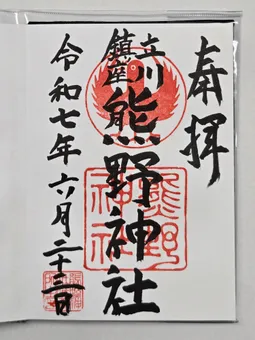 奉拝
立川
鎮座
熊野神社
熊野
神社
令和七年六月二十三日